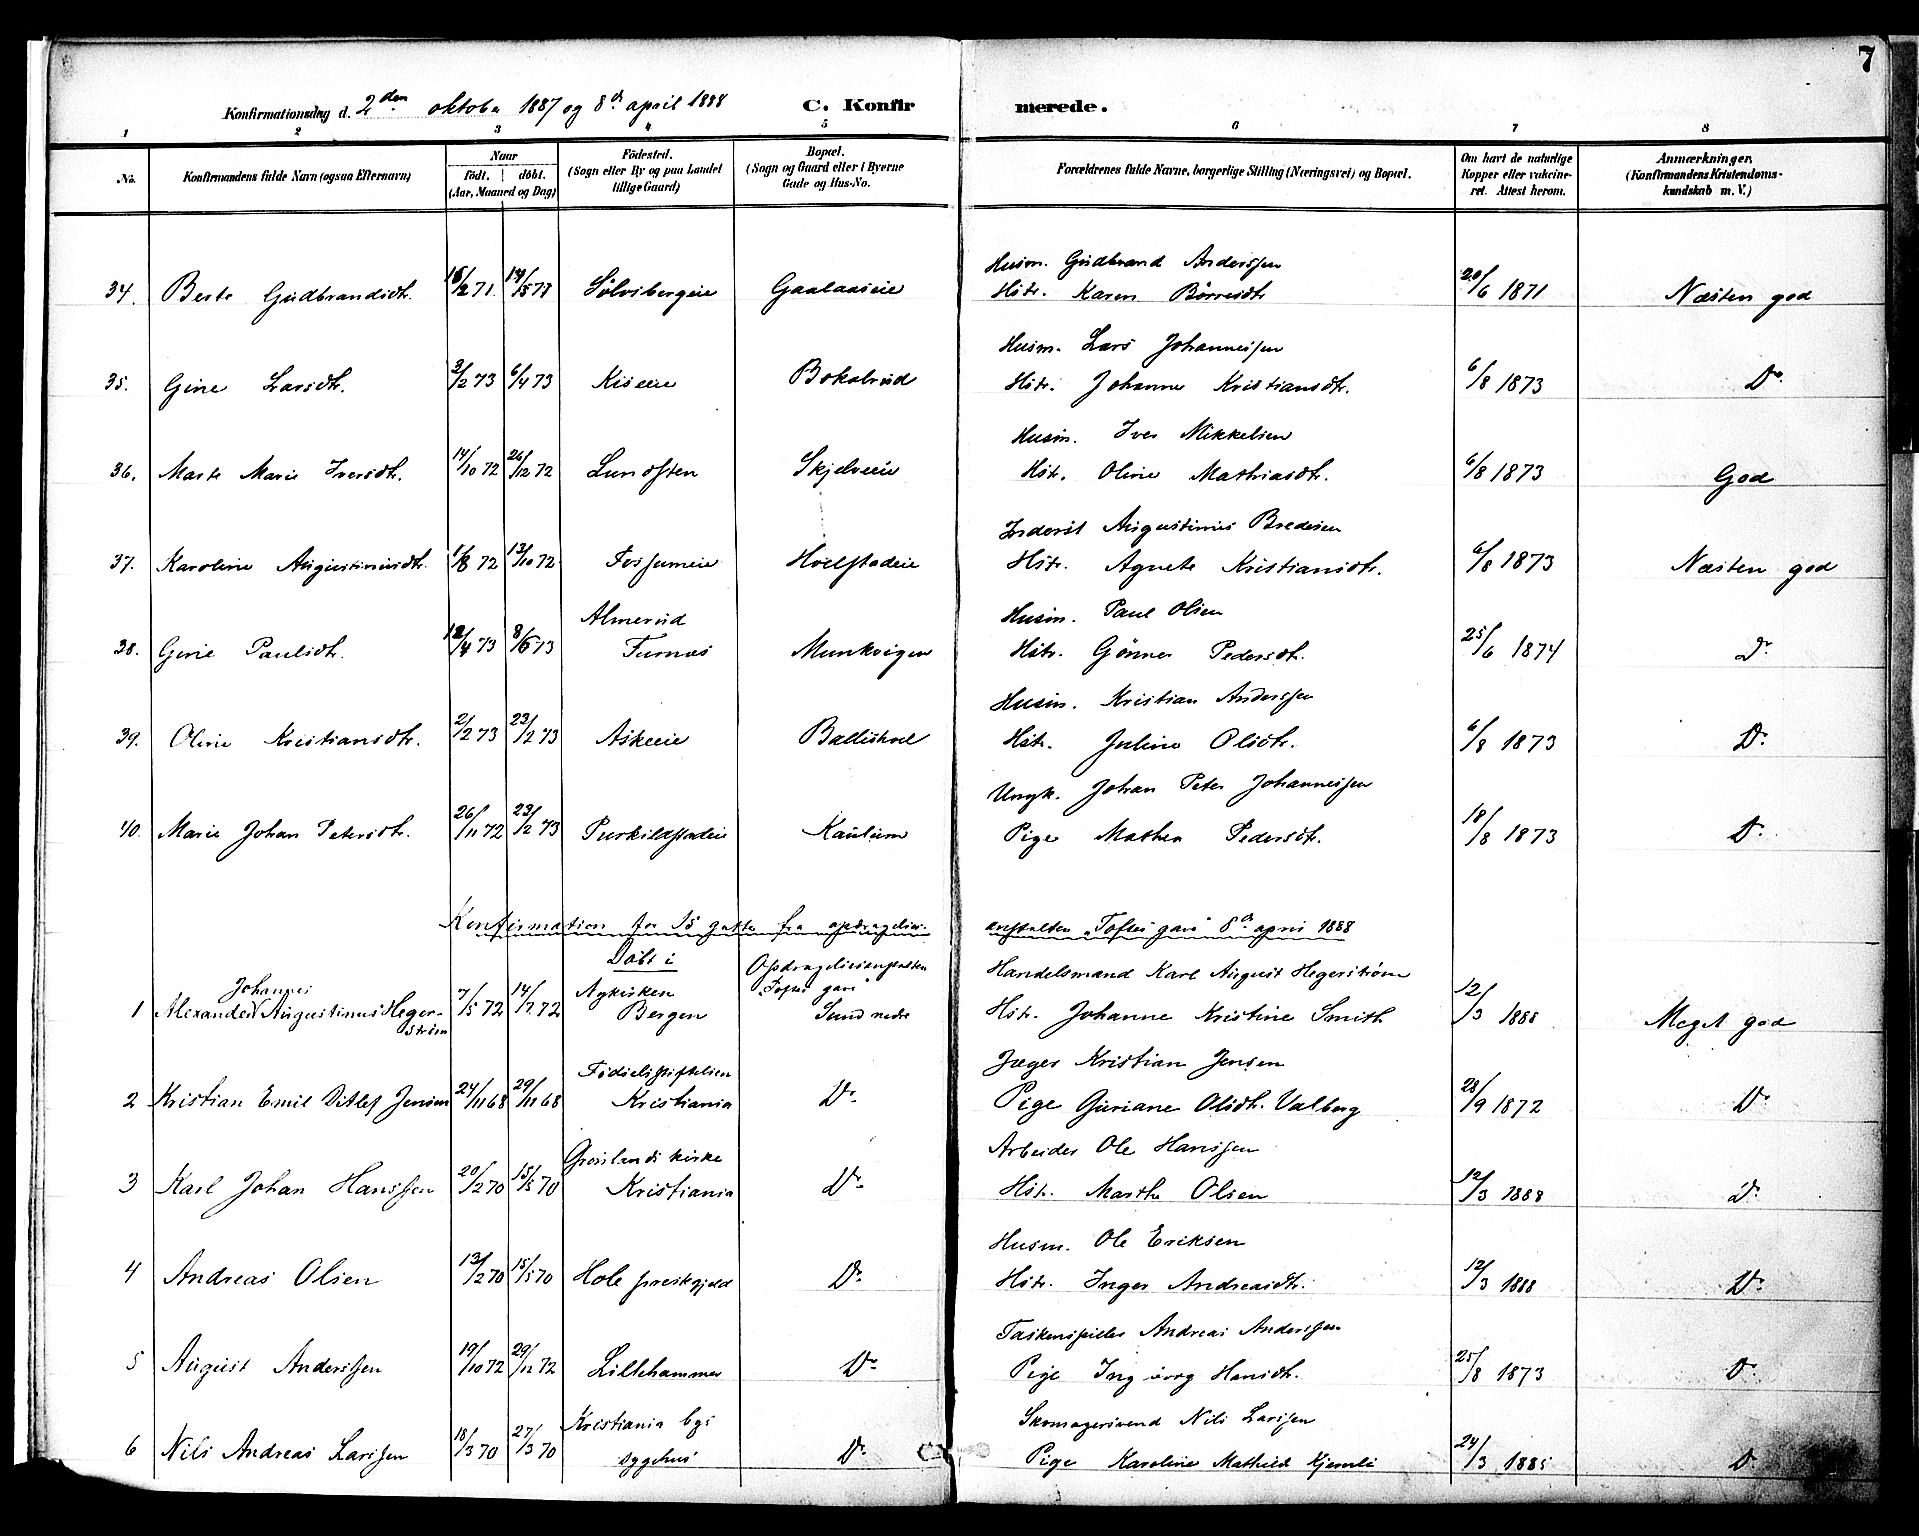 7
Konfirmationsdag d. 2den oktober 1887 og 8de april 1888
C. Konfirmerede.
1 2 3 4 5 6 7 8
No.
Konfirmandens fulde Navn (ogsaa Efternavn)
Naar
født. døbt.
(Aar, Maaned og Dag)
Födested.
(Sogn eller By og paa Landet
tillige Gaard)
Bopæl.
(Sogn og Gaard eller i Byerne
Gade og Hus-No.
Forældrenes fulde Navne, borgerlige Stilling (Næringsvei) og Bopæl.
Om havt de naturlige
Kopper eller vakcine-
ret. Attest herom.
Anmærkninger.
(Konfirmandens Kristendoms-
kundskab m. V.)
Husm. Gudbrand Anderssen
34. Berte Gudbrandsdtr. 15/2 71. 14/5 71 Sølvsbergeie Gaalaaseie Hstr. Karen Børresdtr 20/6 1871 Næsten god
Husm. Lars Johannessen
35. Gine Larsdtr. 2/2 73 6/4 73 Kiseeie Bokalrud Hstr. Johanne Kristiansdtr. 6/8 1873 Do.
Husm. Iver Mikkelsen
36. Marte Marie Iversdtr. 14/10 72 26/12 72 Lundsten Skjelveeie Hstr. Oline Mathiasdtr. 6/8 1873 God
Inderst Augustinus Bredesen
37. Karoline Augustinusdtr. 1/8 72 13/10 72 Fossumeie Hoelstadeie Hstr. Agnete Kristiansdtr. 6/8 1873 Næsten god
Almerud Husm. Paul Olsen
38. Gine Paulsdtr. 12/4 73 8/6 73 Furnæs Munkvigen Hstr. Gønner Pedersdtr. 25/6 1874 Do
Husm. Kristian Anderssen
39. Oline Kristiansdtr. 2/2 73 23/2 73 Askeeie Ballishol Hstr. Juline Olsdtr. 6/8 1873 Do.
Ungk. Johan Peter Johannessen
40. Marie Johan Petersdtr. 26/11 72 23/2 73 Purkildstadeie Kaulum Pige Mathea Pedersdtr. 18/8 1873 Do.
Konfirmation for 15 gutter fra opdragelses- anstalten "Toftes gave" 8de april 1888
Døbt i Opdragelsesanstalten Handelsmand Karl August Hegerstrøm
Johannes Nykirken "Toftes gave"
1 Alexander Augustinus Heger- 7/5 72 14/7 72 Bergen Sund nedre Hstr. Johanne Kristine Smith 12/3 1888 Meget god
strøm
Fødselsstiftelsen Jæger Kristian Jensen
2 Kristian Emil Ditlef Jensen 24/11 68 29/11 68 Kristiania Do. Pige Guriane Olsdtr. Valberg 28/9 1872 Do
Grønlands kirke Arbeider Ole Hanssen
3 Karl Johan Hanssen 20/2 70 15/5 70 Kristiania Do. Hstr. Marthe Olsen 12/3 1888 Do.
Husm. Ole Eriksen
4 Andreas Olsen 13/2 70 15/5 70 Hole prestegjeld Do. Hstr. Inger Andreasdtr. 12/3 1888 Do.
Taskenspiller Andreas Anderssen
5 August Anderssen 19/10 72 29/12 72 Lillehammer Do Pige Ingeborg Hansdtr. 25/8 1873 Do.
Kristiania bys Skomagersvend Nils Larssen
6 Nils Andreas Larssen 18/3 70 27/3 70 sygehus Do. Pige Karoline Mathilde Kjernli 24/3 1885 Do